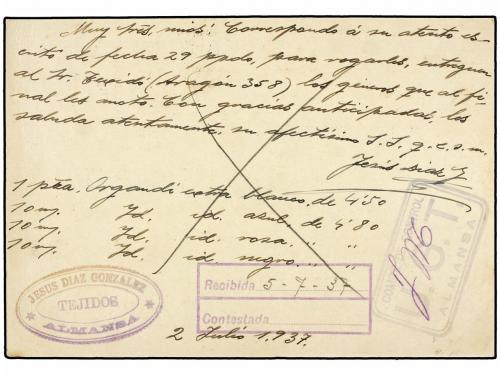 Muy sres. mios: Correspondo á su atento es-
crito de fecha 29 ppdo, para rogarles, entreguen
al Sr. Texidó (Aragón 358) los géneros que al fi-
nal les anoto. Con gracias anticipadas, les
saluda atentamente, su afectísimo S.S. q.e.s.m.
Jesús Diaz G
1 pza. Organdí extra blanco, de 4'50
10 m. Id. id. azul, de 4'80
10 m. Id. id. rosa, " "
10 m. Id. id. negro, " "
JESUS DIAZ GONZALEZ
TEJIDOS
ALMANSA
Recibida 5-7-37
Contestada
CONTROL
U.G.T
ALMANSA
2 Julio 1.937.